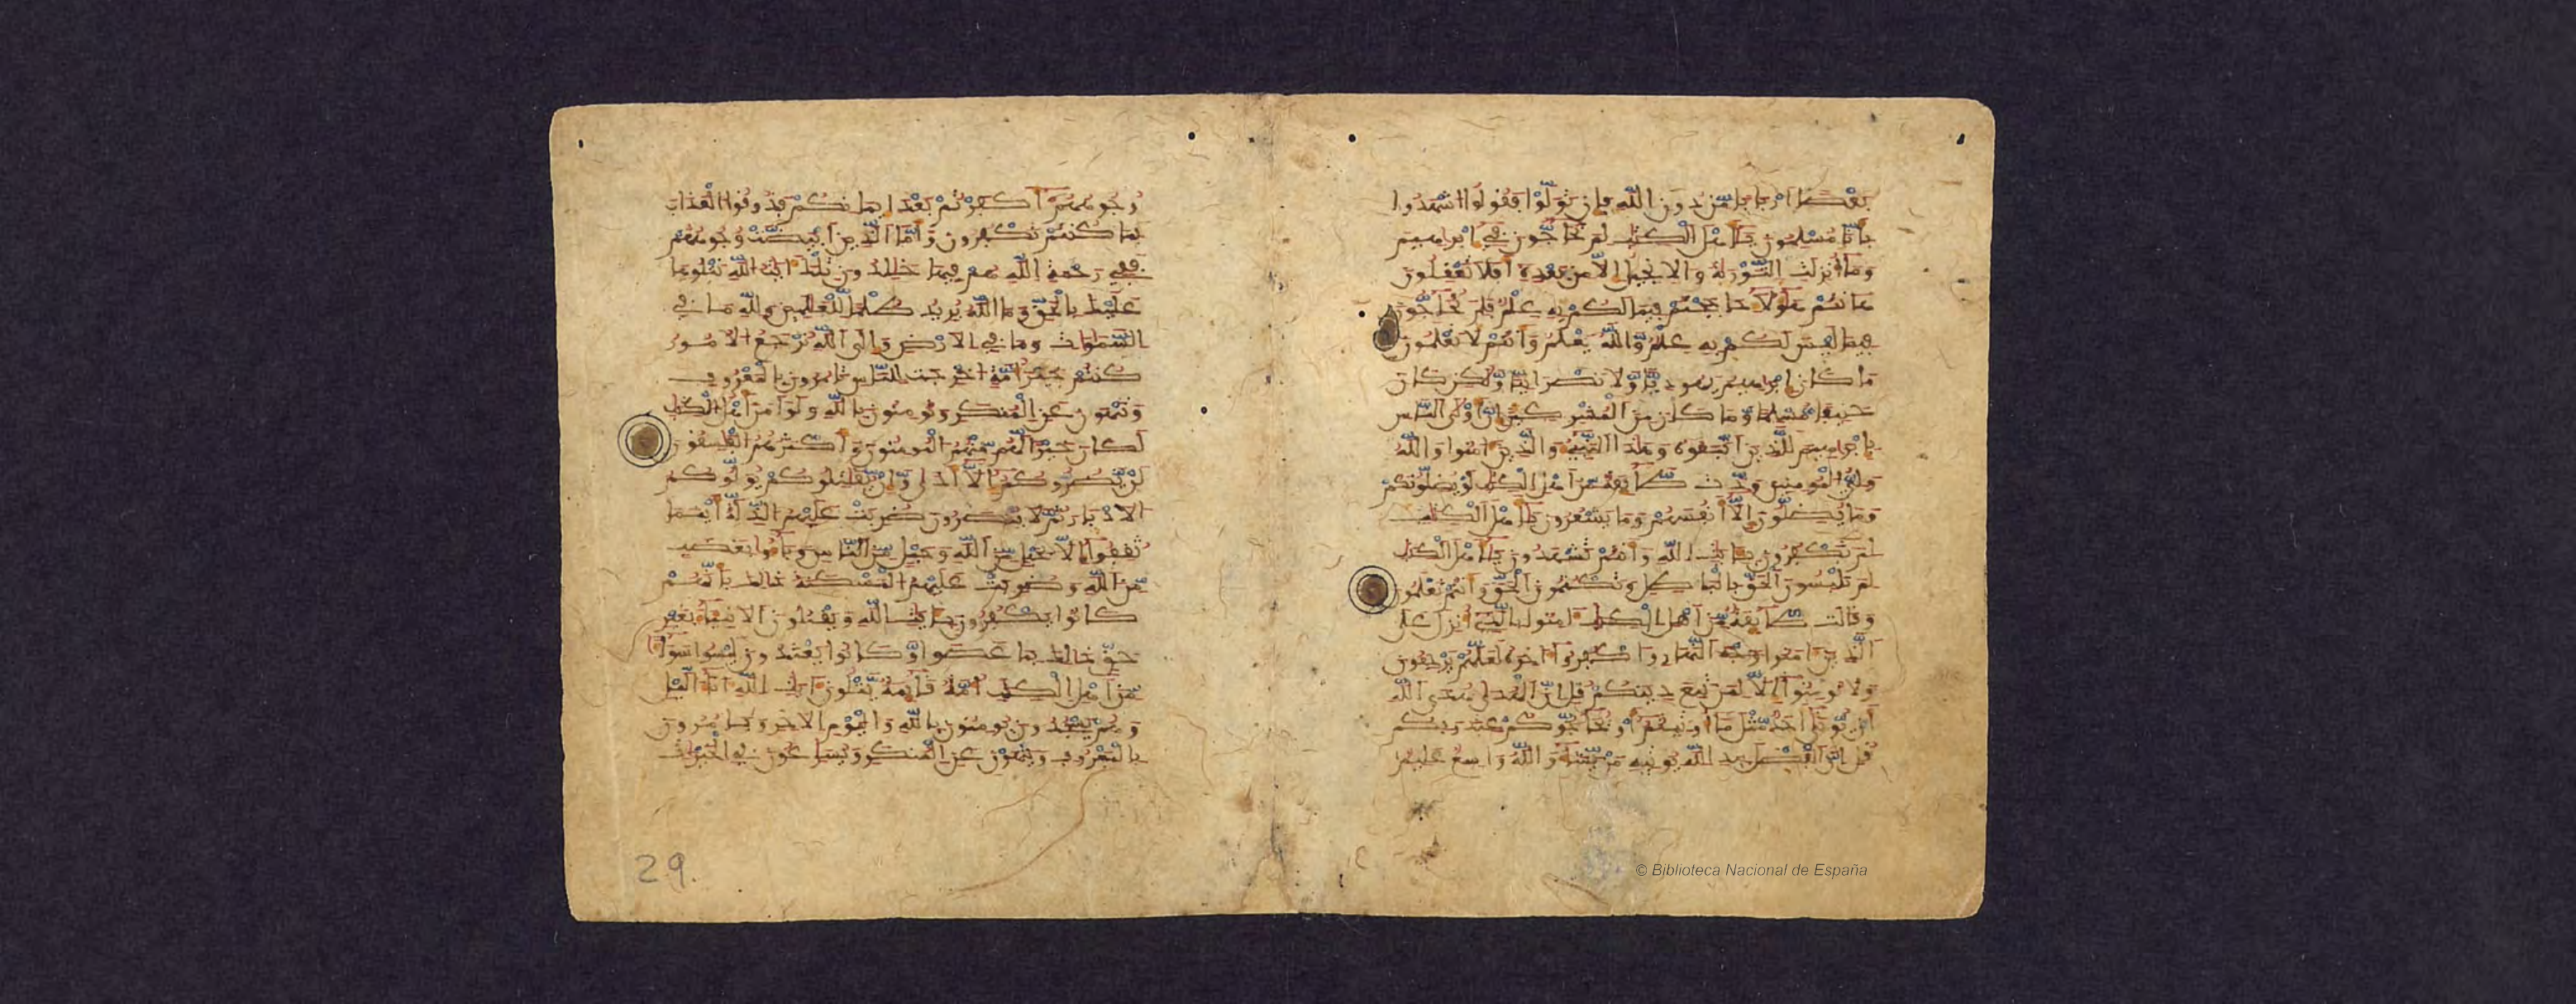 بَعْضًا اَرْبَابًا مِّن دُونِ اِللَّهِ فَإِن تَوَلَّوْاْ فَقُولُواْ اُشْهَدُواْ
بِأَنَّا مُسْلِمُونَ يَٰأَهْلَ اَلْكِتَٰبِ لِمَ تُحَآجُّونَ فِي إِبْرَٰهِيمَ
وَمَآ أُنزِلَتِ اِلتَّوْرَىٰةُ وَالِانجِيلُ إِلَّا مِنۢ بَعْدِهِ أَفَلَا تَعْقِلُونَ
هَانتُمْ هَٰؤُلَآءِ حَٰجَجْتُمْ فِيمَا لَكُم بِهِ عِلْمٌ فَلِمَ تُحَآجُّونَ
فِيمَا لَيْسَ لَكُم بِهِ عِلْمٌ وَاللَّهُ يَعْلَمُ وَأَنتُمْ لَا تَعْلَمُونَ
مَا كَانَ إِبْرَٰهِيمُ يَهُودِيًّا وَلَا نَصْرَانِيًّا وَلَٰكِن كَانَ
حَنِيفًا مُّسْلِمًا وَمَا كَانَ مِنَ اَلْمُشْرِكِينَ إِنَّ أَوْلَى اَلنَّاسِ
بِإِبْرَٰهِيمَ لَلَّذِينَ اَتَّبَعُوهُ وَهَٰذَا اَلنَّبِيءُ وَالَّذِينَ ءَامَنُواْ وَاللَّهُ
وَلِيُّ اُلْمُومِنِينَ وَدَّت طَّآئِفَةٌ مِّنَ اَهْلِ اِلْكِتَٰبِ لَوْ يُضِلُّونَكُمْ
وَمَا يُضِلُّونَ إِلَّآ أَنفُسَهُمْ وَمَا يَشْعُرُونَ يَٰأَهْلَ اَلْكِتَٰبِ
لِمَ تَكْفُرُونَ بِـَٔايَٰتِ اِللَّهِ وَأَنتُمْ تَشْهَدُونَ يَٰأَهْلَ اَلْكِتَٰبِ
لِمَ تَلْبِسُونَ اَلْحَقَّ بِالْبَٰطِلِ وَتَكْتُمُونَ اَلْحَقَّ وَأَنتُمْ تَعْلَمُونَ
وَقَالَت طَّآئِفَةٌ مِّنَ اَهْلِ اِلْكِتَٰبِ ءَامِنُواْ بِالَّذِي أُنزِلَ عَلَى
اَلَّذِينَ ءَامَنُواْ وَجْهَ اَلنَّهَارِ وَاكْفُرُواْ ءَاخِرَهُ لَعَلَّهُمْ يَرْجِعُونَ
وَلَا تُومِنُواْ إِلَّا لِمَن تَبِعَ دِينَكُمْ قُلِ اِنَّ اَلْهُدَىٰ هُدَى اَللَّهِ
أَن يُوتَىٰ أَحَدٌ مِّثْلَ مَآ أُوتِيتُمُ أَوْ يُحَآجُّوكُمْ عِندَ رَبِّكُمْ
قُلِ اِنَّ اَلْفَضْلَ بِيَدِ اِللَّهِ يُوتِيهِ مَن يَّشَآءُ وَاللَّهُ وَٰسِعٌ عَلِيمٌ
وُجُوهُهُمُ أَكَفَرْتُم بَعْدَ إِيمَٰنِكُمْ فَذُوقُواْ اُلْعَذَابَ
بِمَا كُنتُمْ تَكْفُرُونَ وَأَمَّا اَلَّذِينَ اَبْيَضَّتْ وُجُوهُهُمْ
فَفِي رَحْمَةِ اِللَّهِ هُمْ فِيهَا خَٰلِدُونَ تِلْكَ ءَايَٰتُ اُللَّهِ نَتْلُوهَا
عَلَيْكَ بِالْحَقِّ وَمَا اَللَّهُ يُرِيدُ ظُلْمًا لِّلْعَٰلَمِينَ وَلِلَّهِ مَا فِي
اِلسَّمَٰوَٰتِ وَمَا فِي اِلَارْضِ وَإِلَى اَللَّهِ تُرْجَعُ اُلُامُورُ
كُنتُمْ خَيْرَ أُمَّةٍ اُخْرِجَتْ لِلنَّاسِ تَامُرُونَ بِالْمَعْرُوفِ
وَتَنْهَوْنَ عَنِ اِلْمُنكَرِ وَتُومِنُونَ بِاللَّهِ وَلَوَ اٰمَنَ أَهْلُ اُلْكِتَٰبِ
لَكَانَ خَيْرًا لَّهُم مِّنْهُمُ اُلْمُومِنُونَ وَأَكْثَرُهُمُ اُلْفَٰسِقُونَ
لَنْ يَّضُرُّوكُمُ إِلَّآ أَذًى وَإِنْ يُّقَٰتِلُوكُمْ يُوَلُّوكُمُ
اُلَادْبَٰرَ ثُمَّ لَا يُنصَرُونَ ضُرِبَتْ عَلَيْهِمُ اُلذِّلَّةُ أَيْنَمَا
ثُقِفُواْ إِلَّا بِحَبْلٍ مِّنَ اَللَّهِ وَحَبْلٍ مِّنَ اَلنَّاسِ وَبَآءُو بِغَضَبٍ
مِّنَ اَللَّهِ وَضُرِبَتْ عَلَيْهِمُ اُلْمَسْكَنَةُ ذَٰلِكَ بِأَنَّهُمْ
كَانُواْ يَكْفُرُونَ بِـَٔايَٰتِ اِللَّهِ وَيَقْتُلُونَ اَلَانۢبِئَآءَ بِغَيْرِ
حَقٍّ ذَٰلِكَ بِمَا عَصَواْ وَّكَانُواْ يَعْتَدُونَ لَيْسُواْ سَوَآءً
مِّنَ اَهْلِ اِلْكِتَٰبِ أُمَّةٌ قَآئِمَةٌ يَتْلُونَ ءَايَٰتِ اِللَّهِ ءَانَآءَ اَلَّيْلِ
وَهُمْ يَسْجُدُونَ يُومِنُونَ بِاللَّهِ وَالْيَوْمِ اِلَاخِرِ وَيَامُرُونَ
بِالْمَعْرُوفِ وَيَنْهَوْنَ عَنِ اِلْمُنكَرِ وَيُسَٰرِعُونَ فِي اِلْخَيْرَٰتِ
29.
© Biblioteca Nacional de España